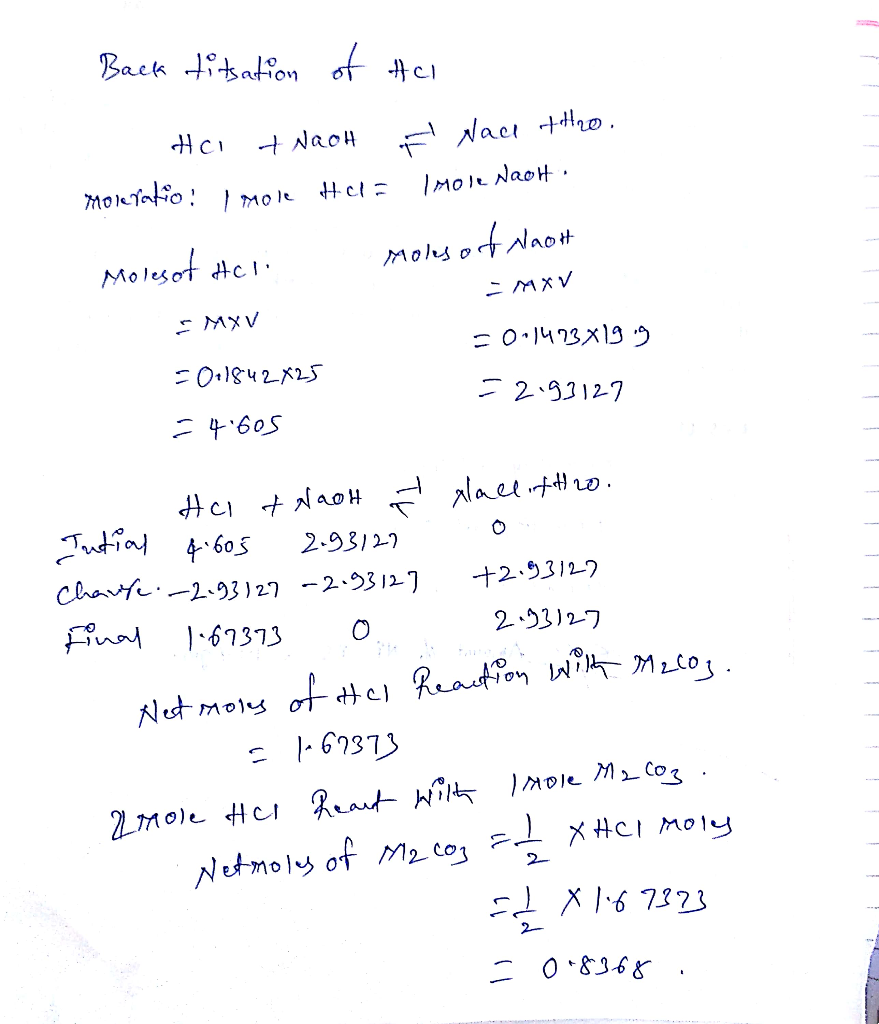 Back titration of HCl
HCl + NaOH ⇌ NaCl + H2O.
Moleratio: 1 mole HCl = 1 mole NaOH.
Moles of HCl. Moles of NaOH
= M×V = M×V
= 0.1842×25 = 0.1473×19.9
= 4.605 = 2.93127
HCl + NaOH ⇌ NaCl + H2O.
Initial 4.605 2.93127 0
Change. -2.93127 -2.93127 +2.93127
Final 1.67373 0 2.93127
Net moles of HCl Reaction With M2CO3.
= 1.67373
2 mole HCl React With 1 mole M2CO3.
Net moles of M2CO3 = 1/2 × HCl moles
= 1/2 × 1.67373
= 0.8368.